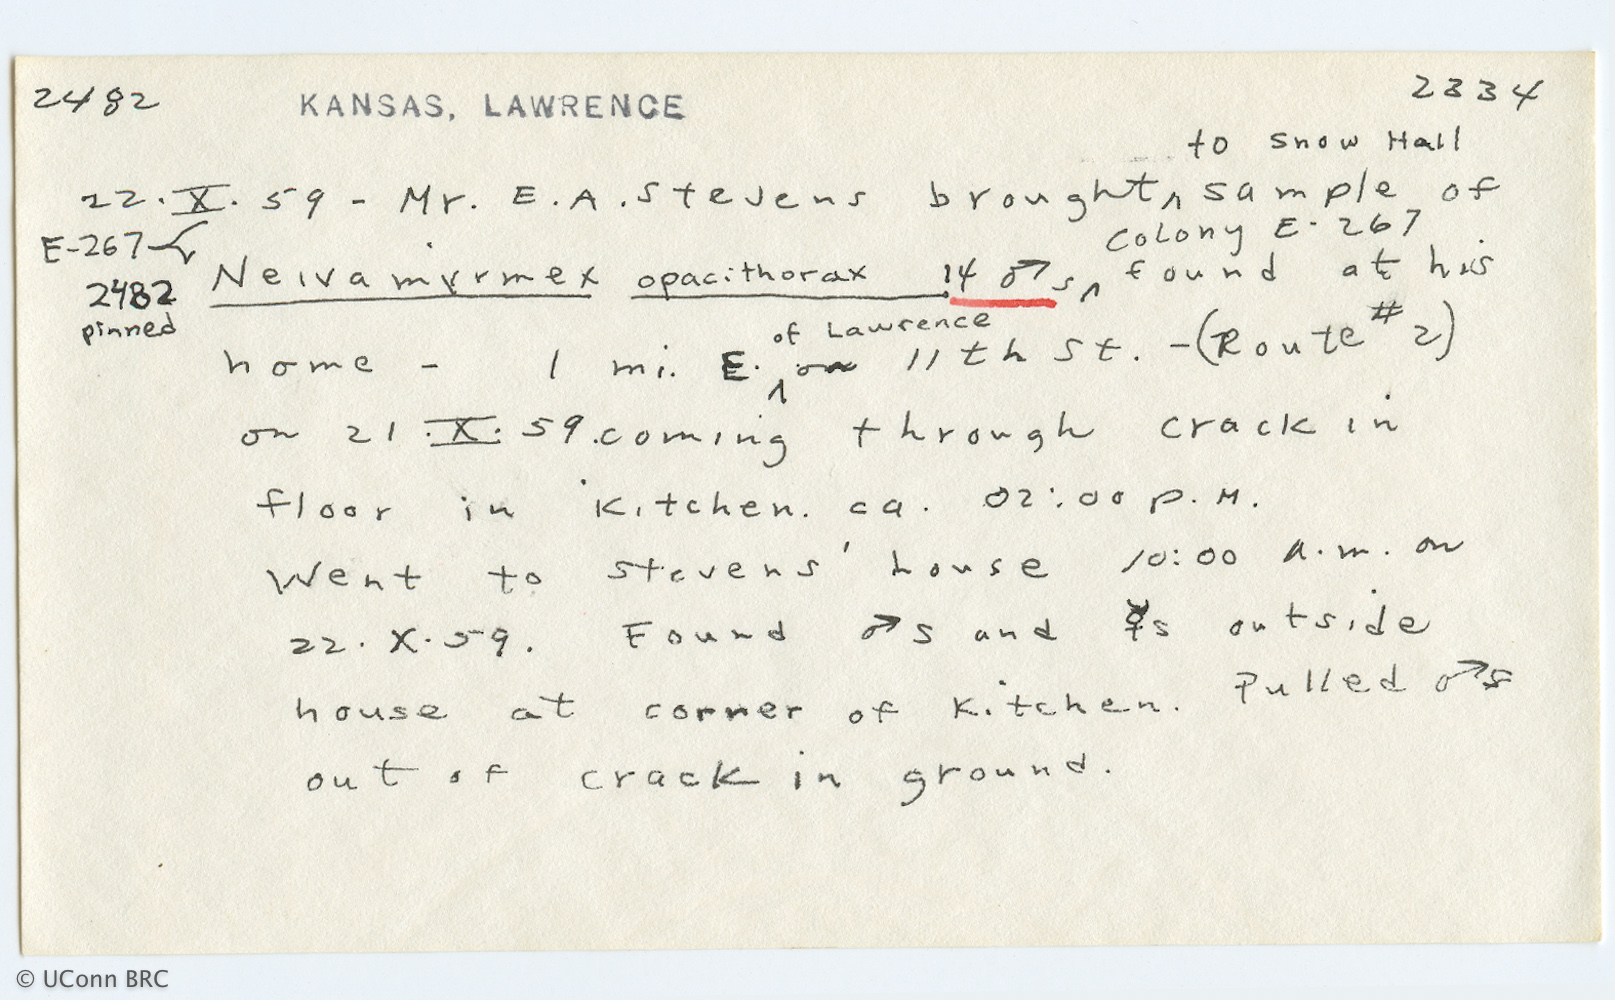 2482 KANSAS, LAWRENCE 2334
to Snow Hall
22.X.59 - Mr. E.A. Stevens brought ^ sample of
E-267 colony E-267
Neivamyrmex opacithorax 14 ♂s ^ found at his
2482
pinned
of Lawrence
home - 1 mi. E. ^ on 11th St. - (Route #2)
on 21.X.59. coming through crack in
floor in kitchen. ca. 02:00 P.M.
Went to Stevens' house 10:00 A.m. on
22.X.59. Found ♂s and ☿s outside
house at corner of kitchen. Pulled ♂s
out of crack in ground.
© UConn BRC